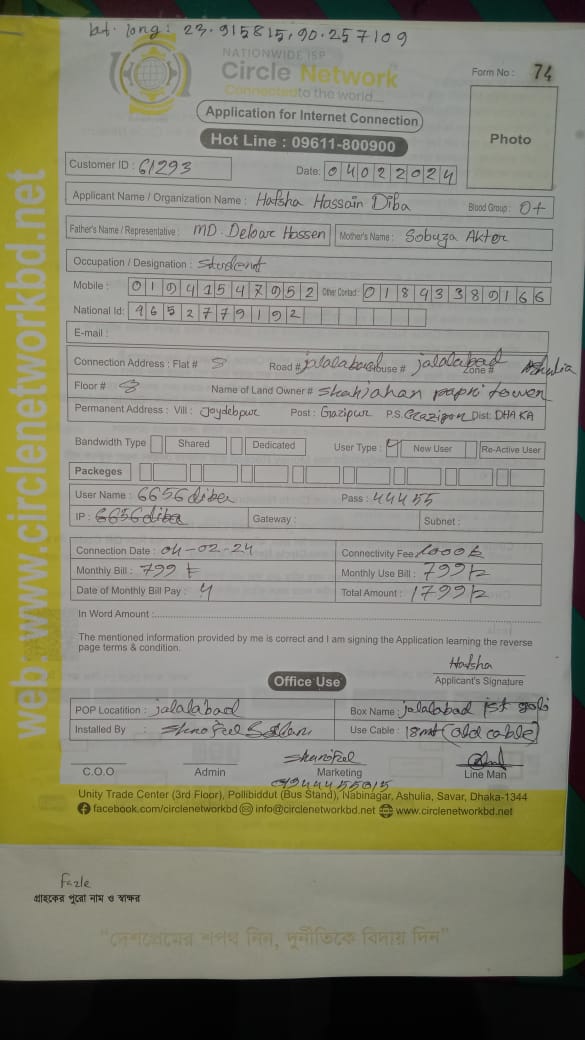 lat. long: 23.915815,90.257109
NATIONWIDE ISP
Circle Network
Connected to the world...
Form No : 74
Application for Internet Connection
Hot Line : 09611-800900
Photo
web: www.circlenetworkbd.net
Customer ID : 61293
Date: 04022024
Applicant Name / Organization Name : Hafsha Hossain Diba Blood Group: O+
Father's Name / Representative : MD. Delowar Hossen Mother's Name : Sobuza Akter
Occupation / Designation : Student
Mobile : 01941547952 Other Contact : 01843389166
National Id: 9652779192
E-mail :
Connection Address : Flat # 8 Road # jalalabad House # jalalabad Zone # Ashulia
Floor # 8 Name of Land Owner # Shahjahan papri tower
Permanent Address : Vill : Joydebpur Post : Gazipur P.S. Gazipur Dist: DHAKA
Bandwidth Type Shared Dedicated User Type : New User Re-Active User
Packeges
User Name : 6656diba Pass : 44455
IP : 6656diba Gateway : Subnet :
Connection Date : 04-02-24 Connectivity Fee 1000
Monthly Bill : 799 Monthly Use Bill : 799
Date of Monthly Bill Pay : 4 Total Amount : 1799
In Word Amount :
The mentioned information provided by me is correct and I am signing the Application learning the reverse
page terms & condition.
Hafsha
Applicant's Signature
Office Use
POP Locatition : jalalabad Box Name : jalalabad 1st goli
Installed By : Use Cable : 18mt (old cable)
C.O.O Admin Marketing Line Man
Unity Trade Center (3rd Floor), Pollibiddut (Bus Stand), Nabinagar, Ashulia, Savar, Dhaka-1344
facebook.com/circlenetworkbd info@circlenetworkbd.net www.circlenetworkbd.net
গ্রাহকের পুরো নাম ও স্বাক্ষর
"দেশপ্রেমের শপথ নিন, দুর্নীতিকে বিদায় দিন"